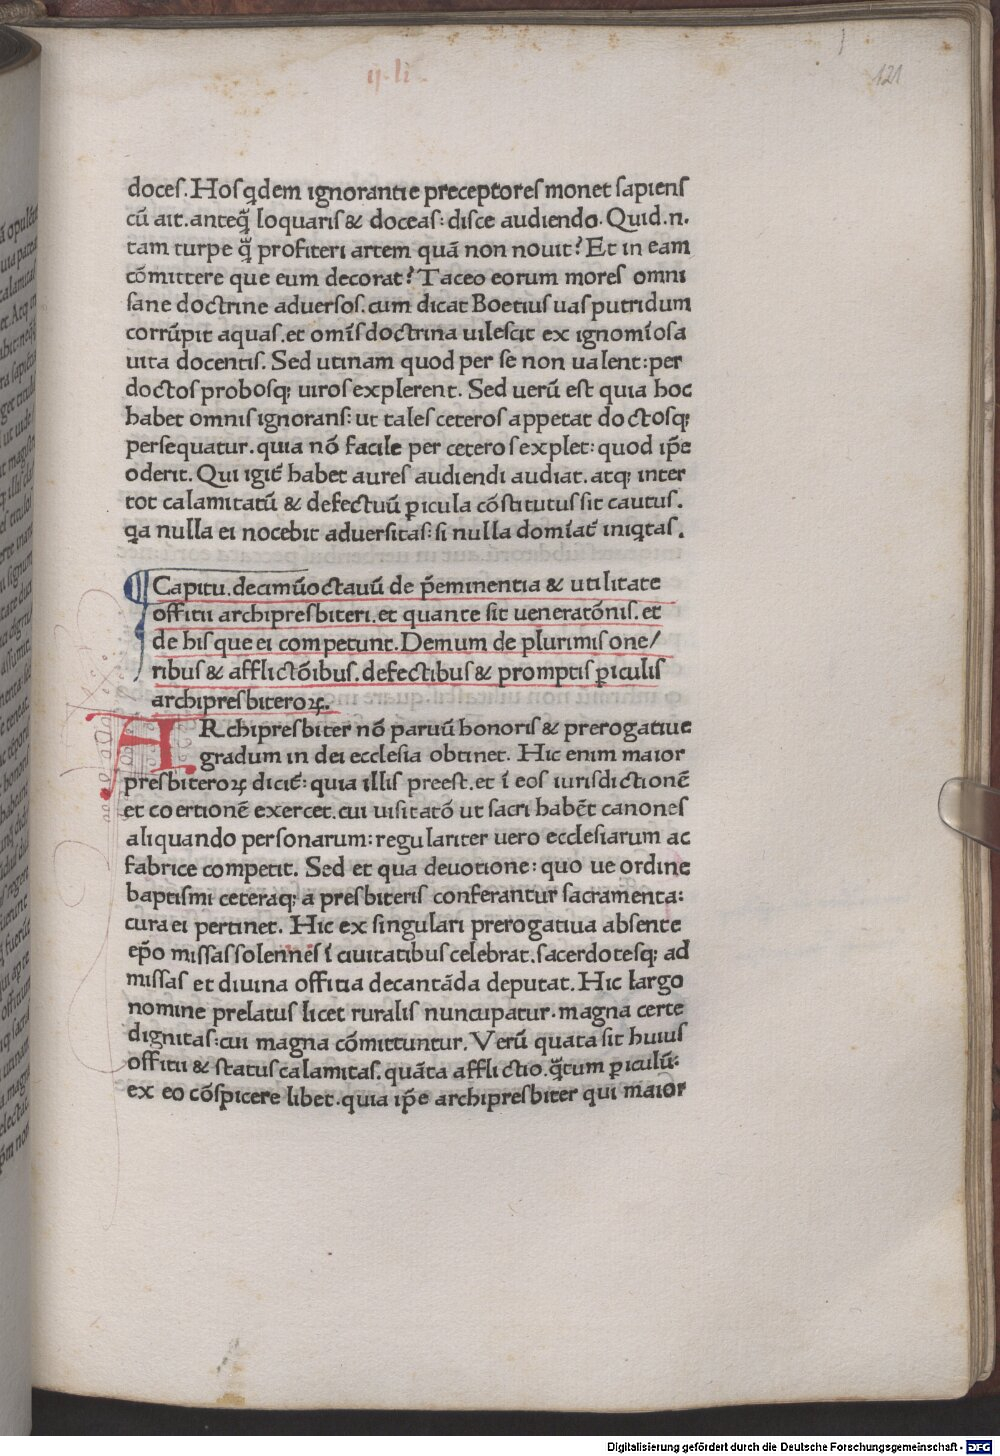 ij. li
121
doces. Hos qdem ignorantie preceptores monet sapiens
cū ait. anteq̄ loquaris & doceas: disce audiendo. Quid.n.
tam turpe q̄ profiteri artem quā non nouit? Et in eam
cōmittere que eum decorat? Taceo eorum mores omni
sane doctrine aduersos. cum dicat Boetius uas putridum
corrūpit aquas. et omīs doctrina uilescit ex ignomīosa
uita docentis. Sed utinam quod per se non ualent: per
doctos probosqꝫ uiros explerent. Sed uerū est quia hoc
habet omnis ignorans: ut tales ceteros appetat doctosqꝫ
persequatur. quia nō facile per ceteros explet: quod ip̄e
oderit. Qui igit̄ habet aures audiendi audiat. atqꝫ inter
tot calamitatū & defectuū ꝑicula cōstitutus sit cautus.
qa nulla ei nocebit aduersitas: si nulla domīat̄ iniqtas.
¶ Capitu. decimūoctauū de p̄eminentia & utilitate
offitii archipresbiteri. et quante sit ueneratōnis. et
de his que ei competunt. Demum de plurimis one/
ribus & afflictōibus. defectibus & promptis ꝑiculis
archipresbiteroꝝ.
ARchipresbiter nō paruū honoris & prerogatiue
gradum in dei ecclesia obtinet. Hic enim maior
presbiteroꝝ dicit̄: quia illis preest. et ī eos iurisdictionē
et coertionē exercet. cui uisitatō ut sacri habēt canones
aliquando personarum: regulariter uero ecclesiarum ac
fabrice competit. Sed et qua deuotione: quo ue ordine
baptismi ceteraqꝫ a presbiteris conferantur sacramenta:
cura ei pertinet. Hic ex singulari prerogatiua absente
ep̄o missas solennes ī ciuitatibus celebrat. sacerdotesqꝫ ad
missas et diuina offitia decantāda deputat. Hic largo
nomine prelatus licet ruralis nuncupatur. magna certe
dignitas: cui magna cōmittuntur. Verū quata sit huius
offitii & status calamitas. quāta afflictio. q̄tum ꝑiculū:
ex eo cōspicere libet. quia ip̄e archipresbiter qui maior
Digitalisierung gefördert durch die Deutsche Forschungsgemeinschaft - DFG